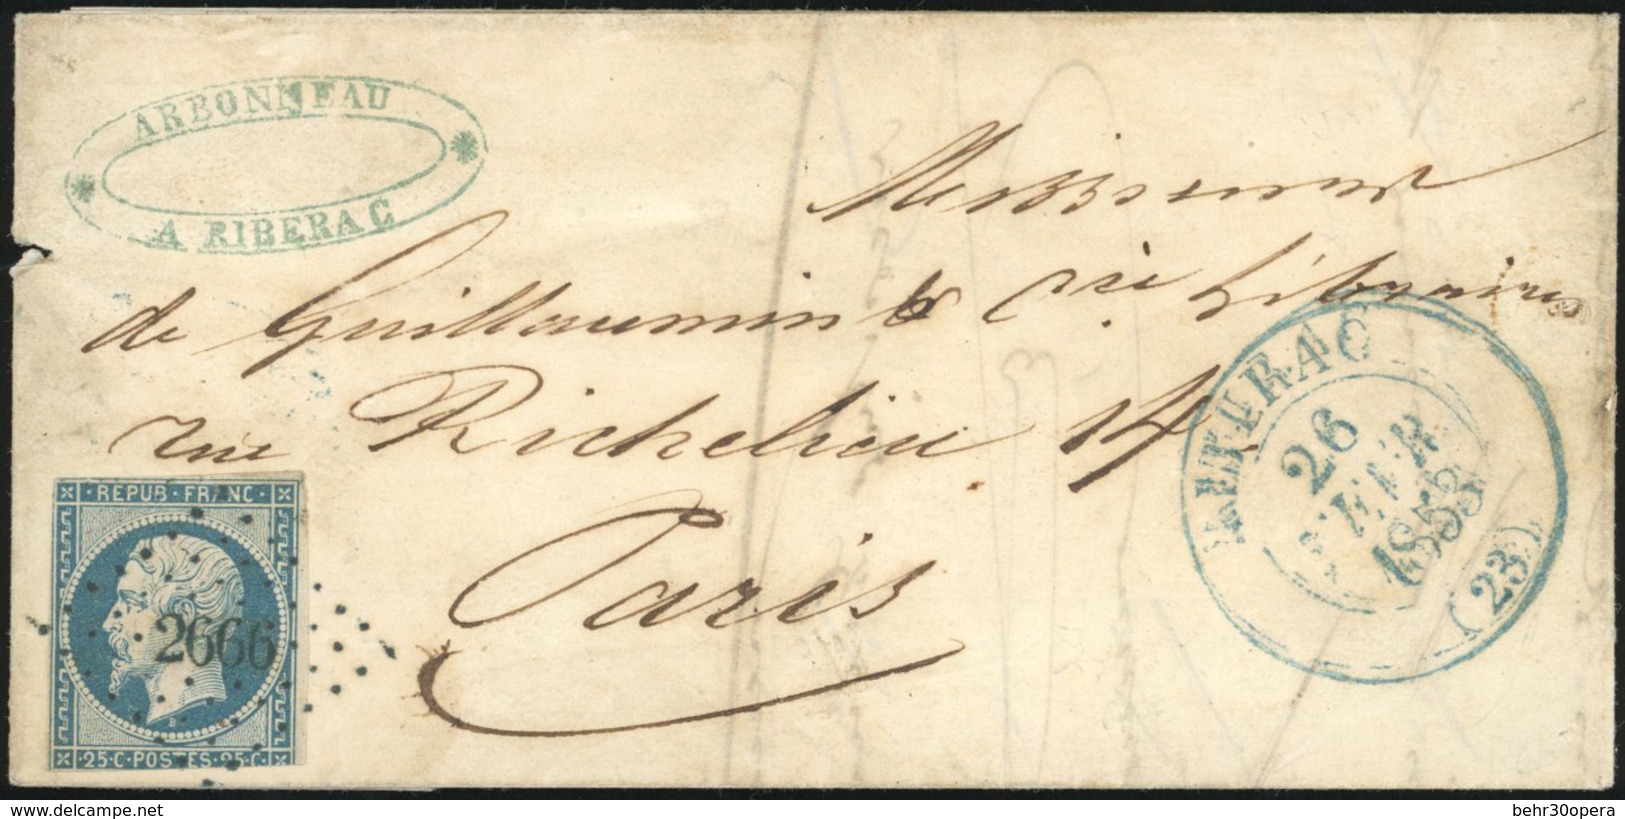 ARBONNEAU
A RIBERAC
Messieurs
de Guillaumin & Cie Libraires
rue Richelieu 14.
Paris
REPUB·FRANC·
2666
B
25·C·POSTES·25·C·
RIBERAC
26
FEVR
1853
(23)
delcampe.net
behr30opera